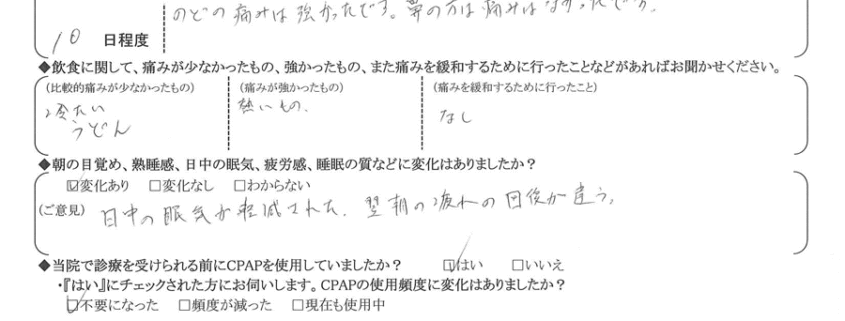 のどの痛みは強かったです。鼻の方は痛みはなかったですが、
10 日程度
◆飲食に関して、痛みが少なかったもの、強かったもの、また痛みを緩和するために行ったことなどがあればお聞かせください。
(比較的痛みが少なかったもの) (痛みが強かったもの) (痛みを緩和するために行ったこと)
冷たい 熱いもの、 なし
うどん
◆朝の目覚め、熟睡感、日中の眠気、疲労感、睡眠の質などに変化はありましたか？
☑変化あり □変化なし □わからない
(ご意見) 日中の眠気が軽減された、翌朝の疲れの回復が違う。
◆当院で診療を受けられる前にCPAPを使用していましたか？ ☑はい □いいえ
・『はい』にチェックされた方にお伺いします。CPAPの使用頻度に変化はありましたか？
☑不要になった □頻度が減った □現在も使用中